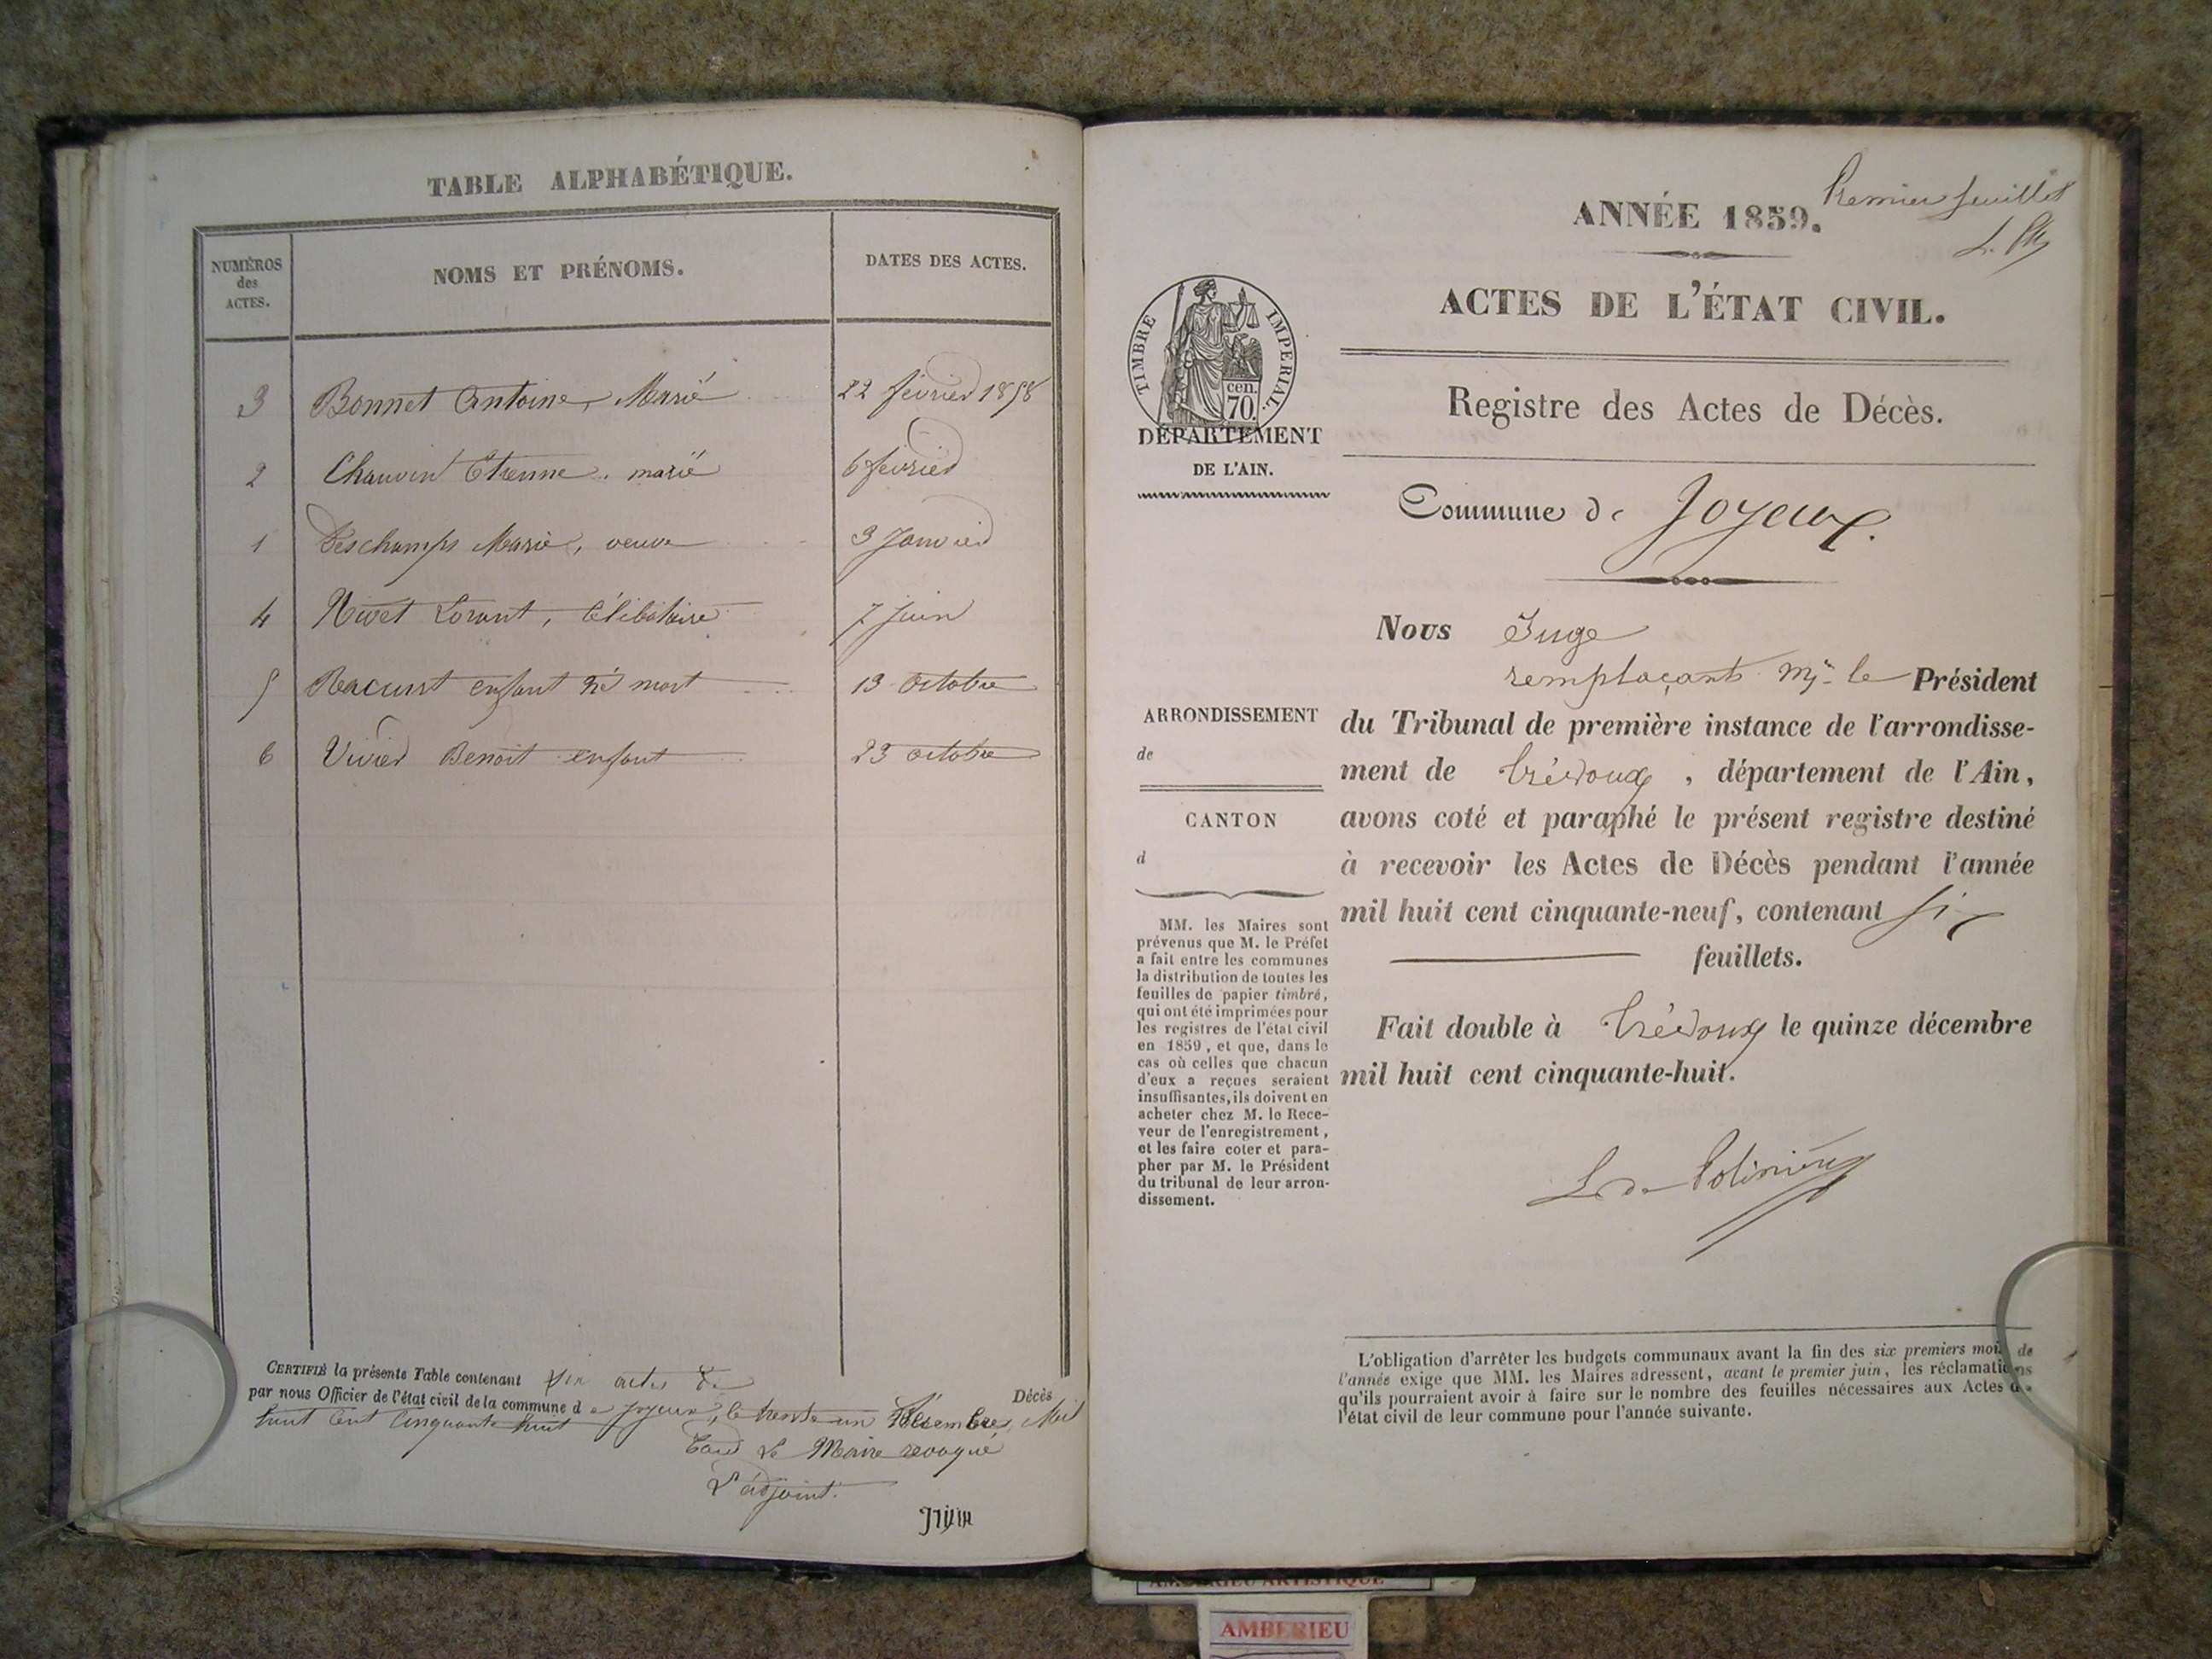 TABLE ALPHABÉTIQUE.
NUMÉROS
des
ACTES.
NOMS ET PRÉNOMS.
DATES DES ACTES.
3 Bonnet Antoine, Marié 22 février 1858
2 Chauvin Etienne. marié 6 février
1 Deschamps Marie, veuve 3 Janvier
4 Nivet Lorant, Célibataire 7 juin
5 Racurt enfant né mort 13 octobre
6 Vivier Benoit enfant 23 octobre
CERTIFIÉ la présente Table contenant six actes de
Décès
par nous Officier de l'état civil de la commune de Joyeux, le trente un Décembre, Mil
huit Cent Cinquante huit
Le Maire revoqué
L'adjoint.
ANNÉE 1859.
Premier feuillet
ACTES DE L'ÉTAT CIVIL.
TIMBRE IMPERIAL.
cen.
70.
DÉPARTEMENT
DE L'AIN.
Registre des Actes de Décès.
Commune de Joyeux.
Nous Juge
remplaçant Mr le Président
du Tribunal de première instance de l'arrondisse-
ment de Trévoux, département de l'Ain,
avons coté et paraphé le présent registre destiné
à recevoir les Actes de Décès pendant l'année
mil huit cent cinquante-neuf, contenant six
feuillets.
Fait double à Trévoux le quinze décembre
mil huit cent cinquante-huit.
ARRONDISSEMENT
de
CANTON
d
MM. les Maires sont
prévenus que M. le Préfet
a fait entre les communes
la distribution de toutes les
feuilles de papier timbré,
qui ont été imprimées pour
les registres de l'état civil
en 1859, et que, dans le
cas où celles que chacun
d'eux a reçues seraient
insuffisantes, ils doivent en
acheter chez M. le Rece-
veur de l'enregistrement,
et les faire coter et para-
pher par M. le Président
du tribunal de leur arron-
dissement.
L'obligation d'arrêter les budgets communaux avant la fin des six premiers mois de
l'année exige que MM. les Maires adressent, avant le premier juin, les réclamations
qu'ils pourraient avoir à faire sur le nombre des feuilles nécessaires aux Actes de
l'état civil de leur commune pour l'année suivante.
AMBERIEU ARTISTIQUE
AMBERIEU